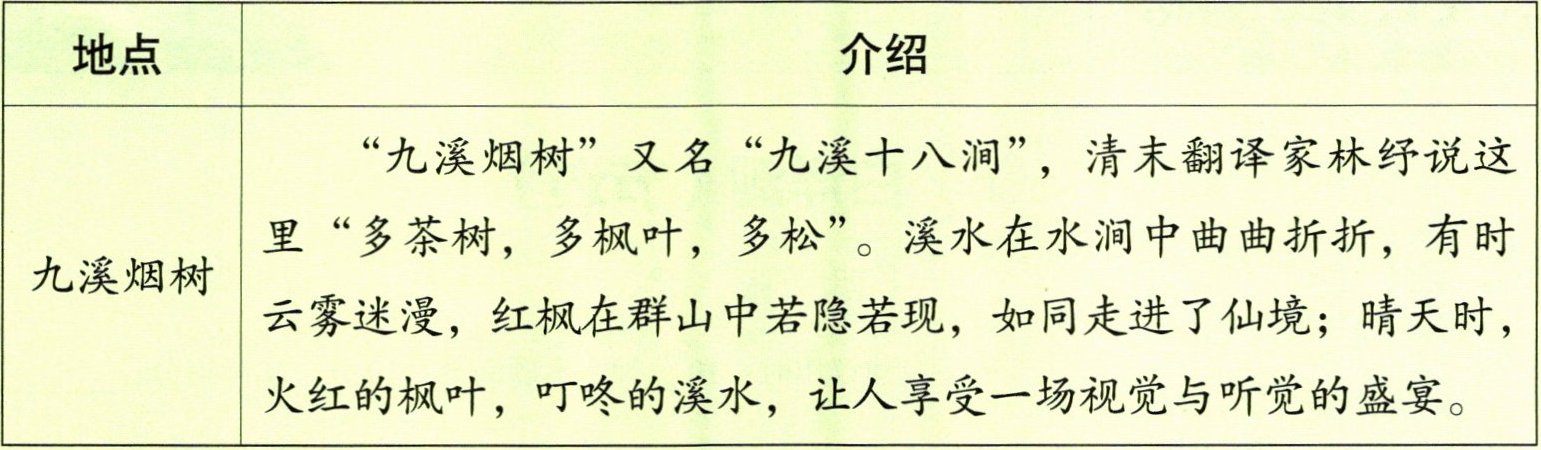 地点 介绍
“九溪烟树”又名“九溪十八涧”，清末翻译家林纾说这
里“多茶树，多枫叶，多松”。溪水在水涧中曲曲折折，有时
九溪烟树
云雾迷漫，红枫在群山中若隐若现，如同走进了仙境；晴天时，
火红的枫叶，叮咚的溪水，让人享受一场视觉与听觉的盛宴。